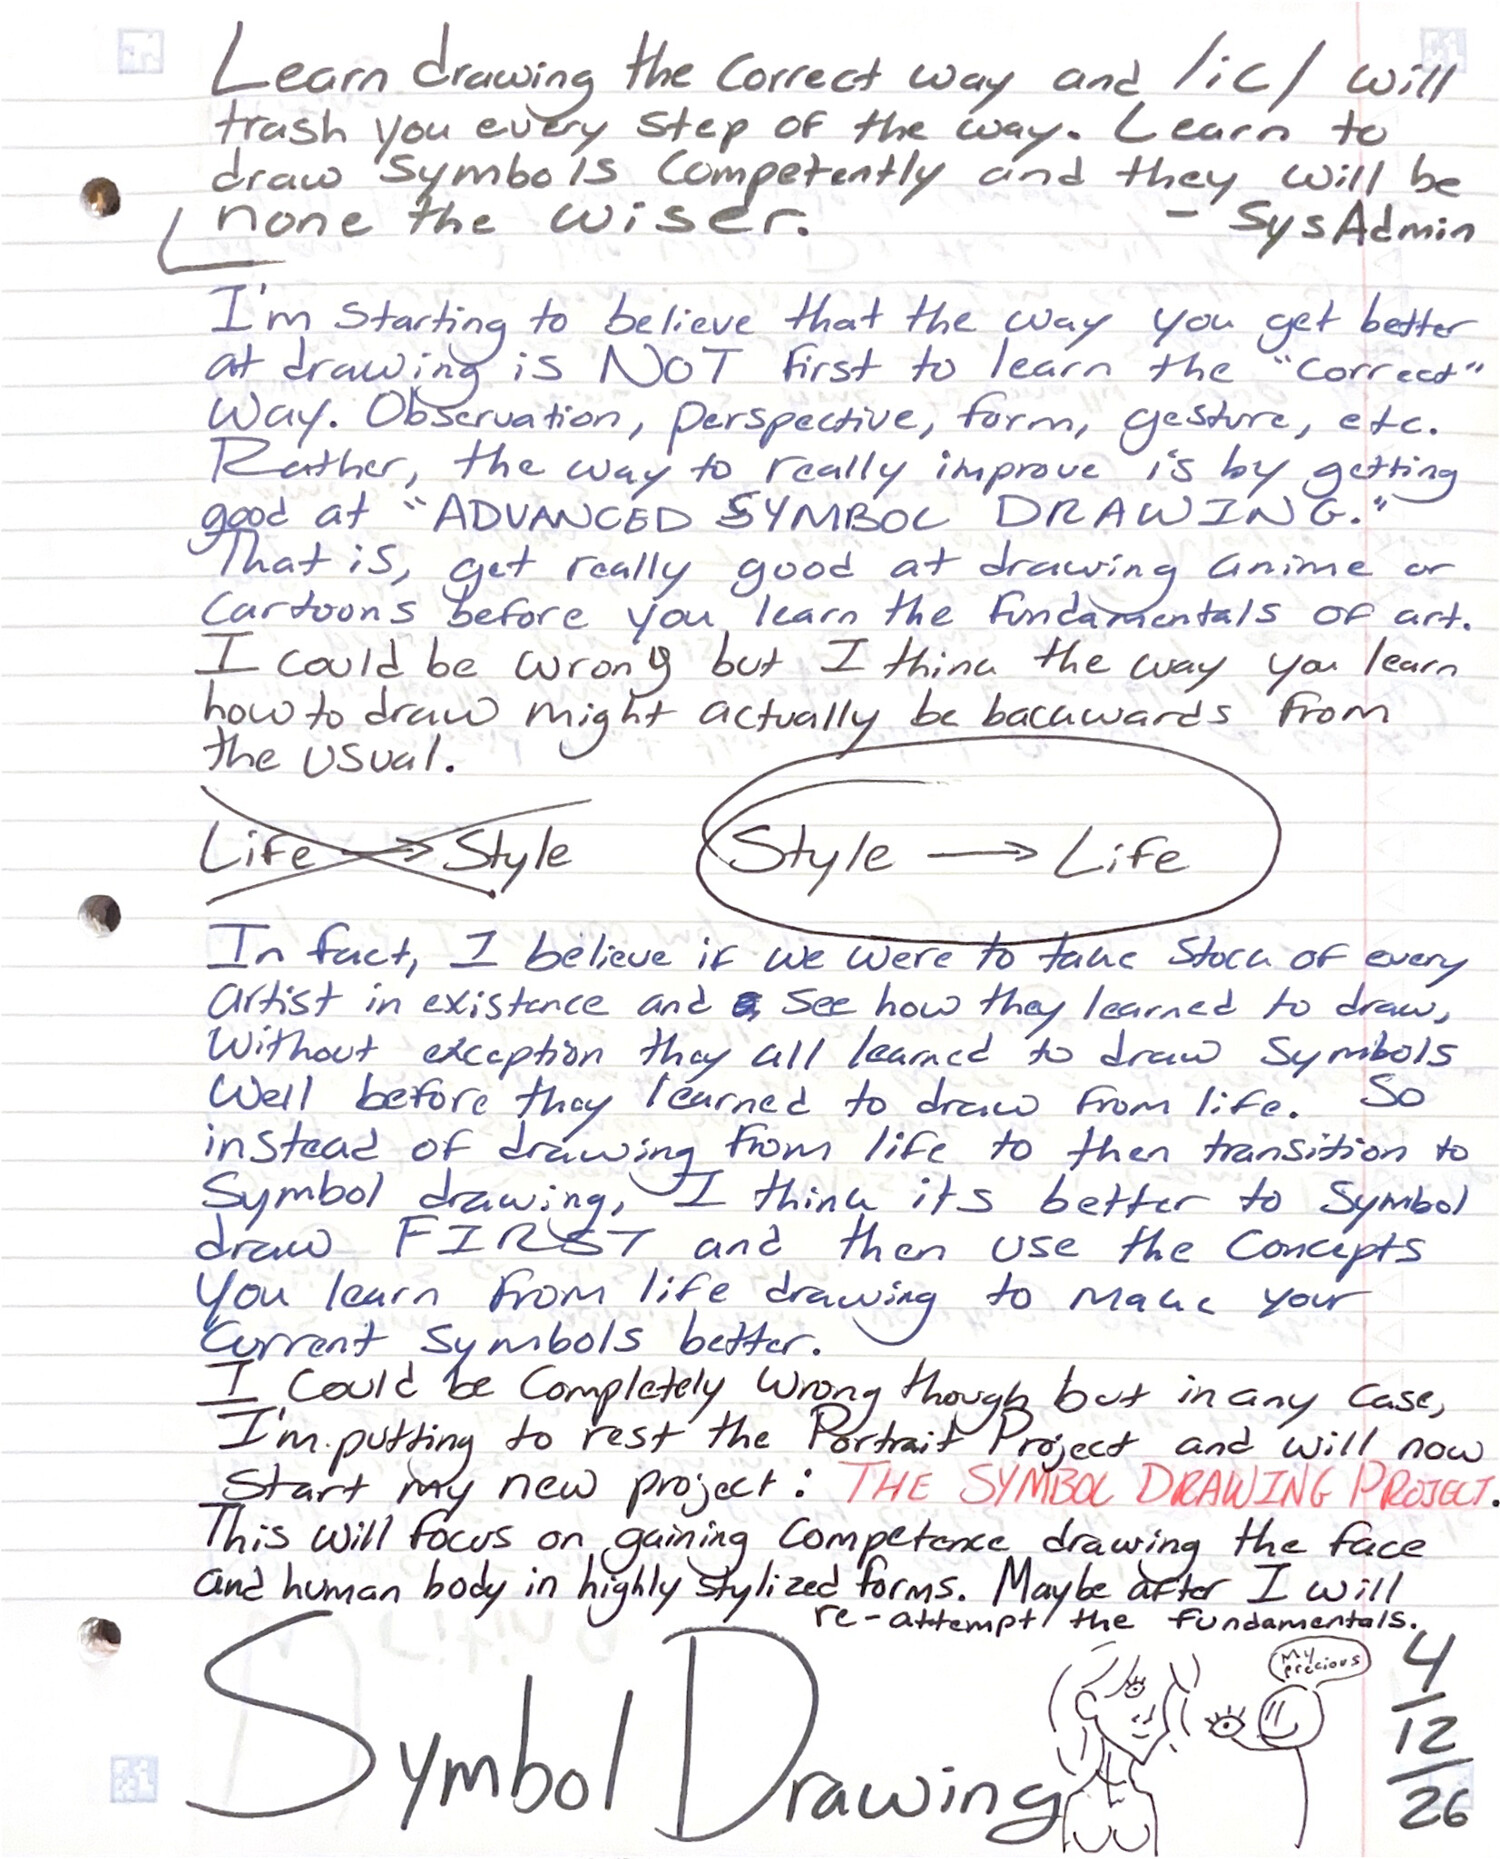 Learn drawing the correct way and /ic/ will
trash you every step of the way. Learn to
draw symbols competently and they will be
none the wiser. - SysAdmin
I'm starting to believe that the way you get better
at drawing is NOT first to learn the "correct"
way. Observation, perspective, form, gesture, etc.
Rather, the way to really improve is by getting
good at "ADVANCED SYMBOL DRAWING."
That is, get really good at drawing anime or
cartoons before you learn the fundamentals of art.
I could be wrong but I think the way you learn
how to draw might actually be backwards from
the usual.
Life → Style Style → Life
In fact, I believe if we were to take stock of every
artist in existence and see how they learned to draw,
without exception they all learned to draw symbols
well before they learned to draw from life. So
instead of drawing from life to then transition to
symbol drawing, I think its better to symbol
draw FIRST and then use the concepts
you learn from life drawing to make your
current symbols better.
I could be completely wrong though but in any case,
I'm putting to rest the Portrait Project and will now
start my new project: THE SYMBOL DRAWING PROJECT.
This will focus on gaining competence drawing the face
and human body in highly stylized forms. Maybe after I will
re-attempt the fundamentals.
My
precious
Symbol Drawing
4/12/26